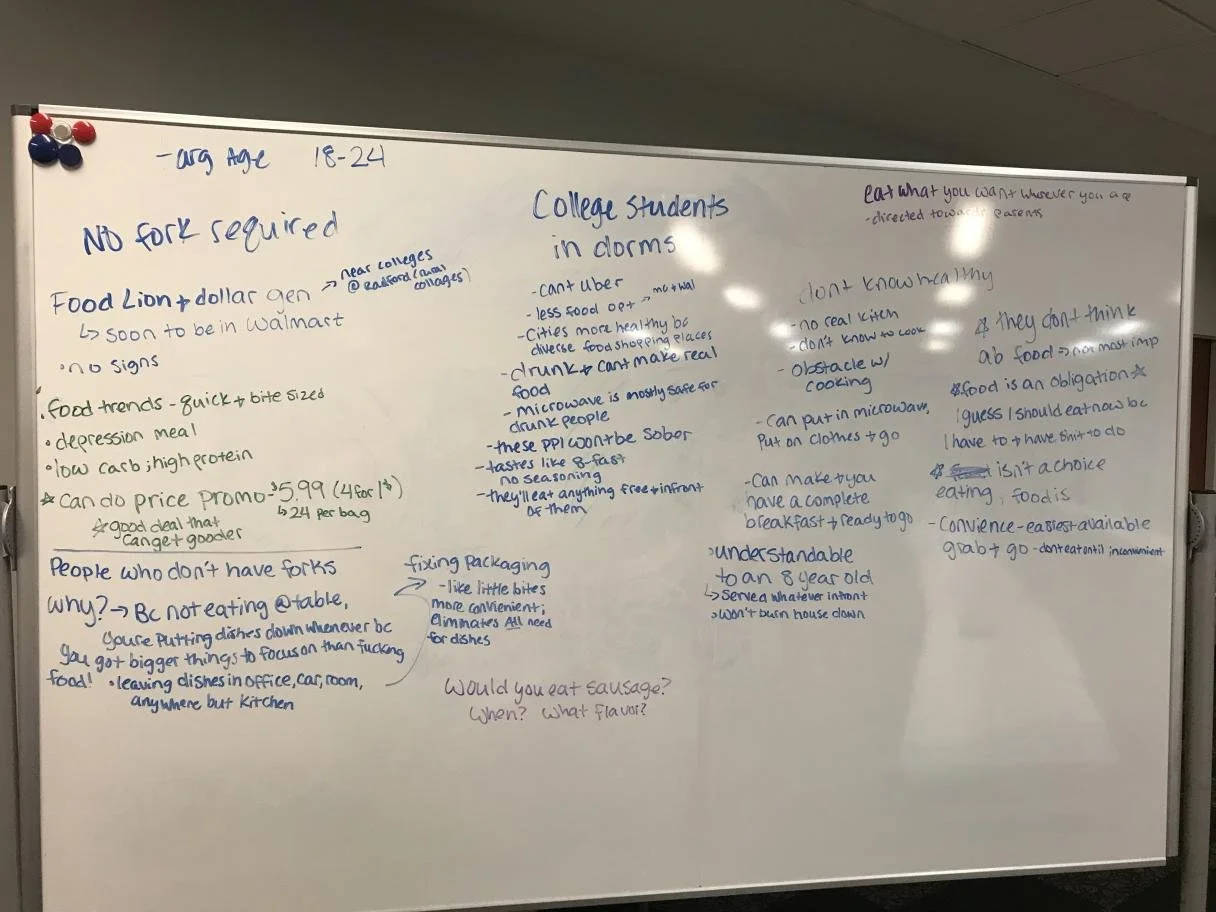 - avg Age 18-24
No fork required
Food Lion + dollar gen → near colleges
@ Radford (rural
collages)
↳ soon to be in Walmart
• no signs
• food trends - quick + bite sized
• depression meal
• low carb ; high protein
☆ Can do price promo - $5.99 (4 for 1$)
↳ 24 per bag
☆ good deal that
can get gooder
People who don't have forks
why? → Bc not eating @ table,
you're putting dishes down whenever bc
you got bigger things to focus on than fucking
food! • leaving dishes in office, car, room,
anywhere but kitchen
fixing packaging
- like little bites
more convienient;
eliminates All need
for dishes
College students
in dorms
- cant uber
- less food opt →
- Cities more healthy bc
diverse food shopping places
- drunk + cant make real
food
- microwave is mostly safe for
drunk people
- these PPl wont be sober
- tastes like B-fast
no seasoning
- they'll eat anything free + infront
of them
Would you eat sausage?
When? What flavor?
dont know healthy
- no real kitch
- don't know to cook
- obstacle w/
cooking
- Can put in microwave,
put on clothes + go
- Can make + you
have a complete
breakfast + ready to go
• understandable
to an 8 year old
↳ Served whatever infront
• won't burn house down
eat what you want wherever you are
- directed towards parents
☆ they dont think
ab food → not most imp
☆ food is an obligation ☆
I guess I should eat now bc
I have to + have shit to do
☆ isn't a choice
eating, food is
- Convience - easiest available
grab + go - dont eat until inconvenient